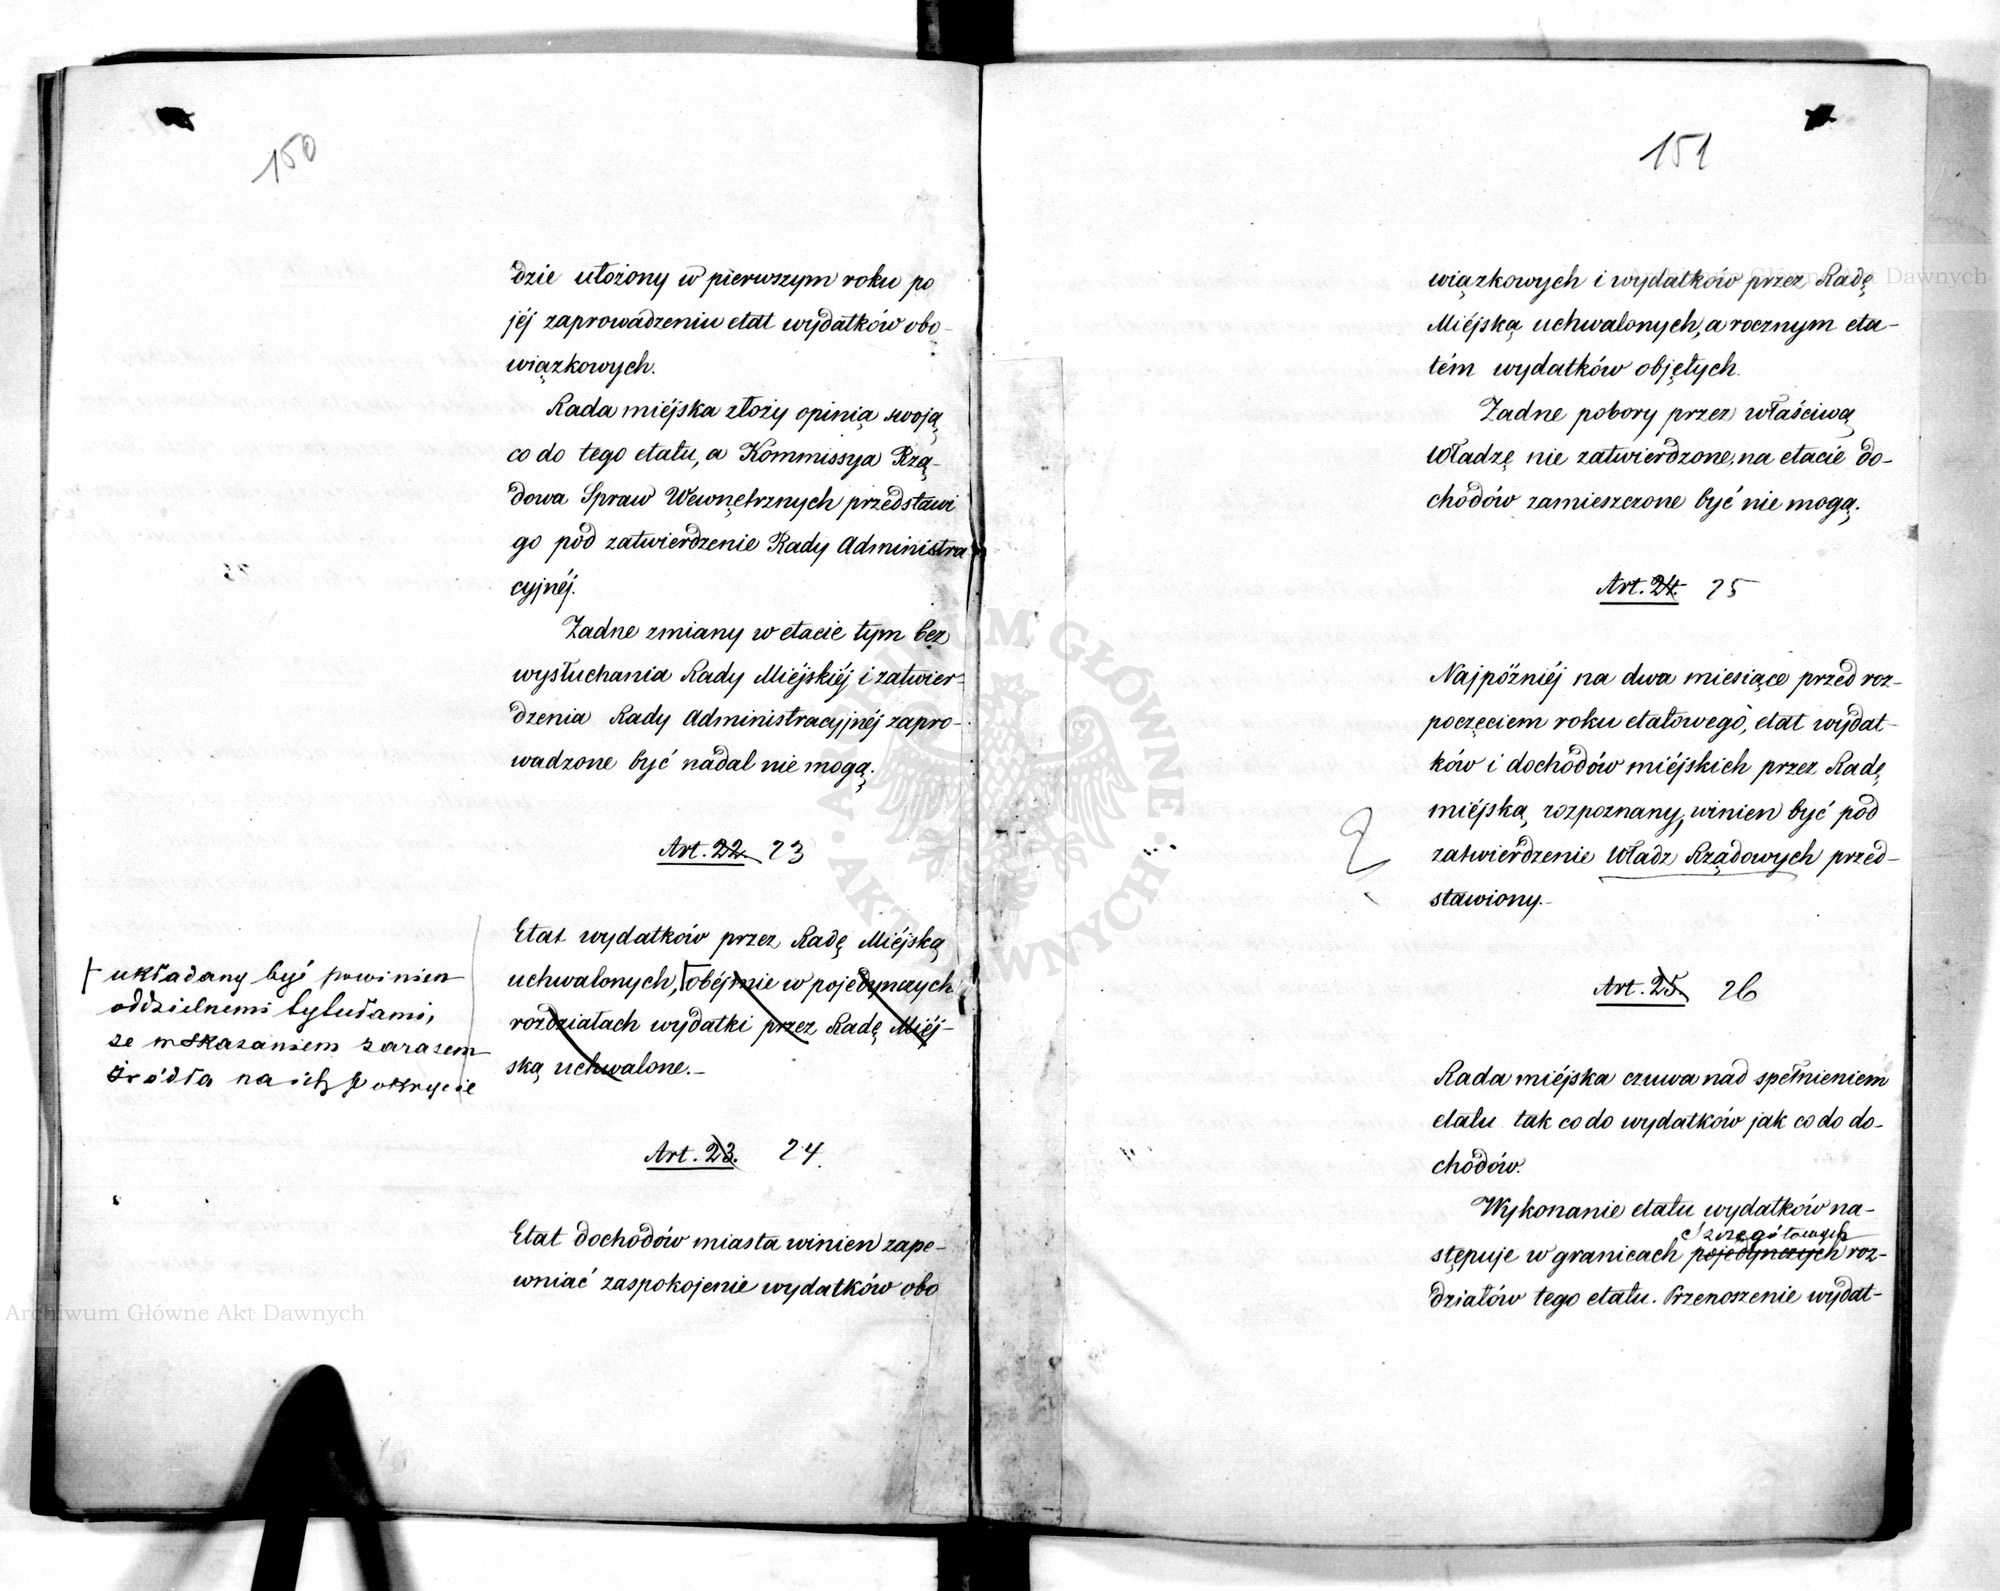 150
dzie ułożony w pierwszym roku po
jéj zaprowadzeniu etat wydatków obo-
wiązkowych.
Rada miéjska złoży opinią swoją
co do tego etatu, a Kommissya Rzą-
dowa Spraw Wewnętrznych przedstawi
go pod zatwierdzenie Rady Administra
cyjnéj.
Żadne zmiany w etacie tym bez
wysłuchania Rady Miéjskiéj i zatwier-
dzenia Rady Administracyjnéj zapro-
wadzone być nadal nie mogą.
Art. 22. 23
Etat wydatków przez Radę Miéjską
uchwalonych, obéjmie w pojedynczych
rozdziałach wydatki przez Radę Miéj-
ską uchwalone.-
układany być powinien
oddzielnemi tytułami,
ze wskazaniem zarazem
źródła na ich pokrycie
Art. 23. 24.
Etat dochodów miasta winien zape-
wniać zaspokojenie wydatków obo
Archiwum Główne Akt Dawnych
151
wiązkowych i wydatków przez Radę
Miéjską uchwalonych, a rocznym eta-
tém wydatków objętych.
Żadne pobory przez właściwą
Władzę nie zatwierdzone, na etacie do-
chodów zamieszczone być nie mogą.
Art. 24. 25
Najpóźniéj na dwa miesiące przed roz-
poczęciem roku etatowego, etat wydat-
ków i dochodów miéjskich przez Radę
miéjską rozpoznany, winien być pod
zatwierdzenie Władz Rządowych przed-
stawiony.-
Art. 25. 26
Rada miéjska czuwa nad spełnieniem
etatu tak co do wydatków jak co do do-
chodów.
Wykonanie etatu wydatków na-
szczegółowych
stępuje w granicach pojedynczych roz-
działów tego etatu. Przenoszenie wydat-
Archiwum Główne Akt Dawnych
ARCHIWUM GŁÓWNE · AKT DAWNYCH ·